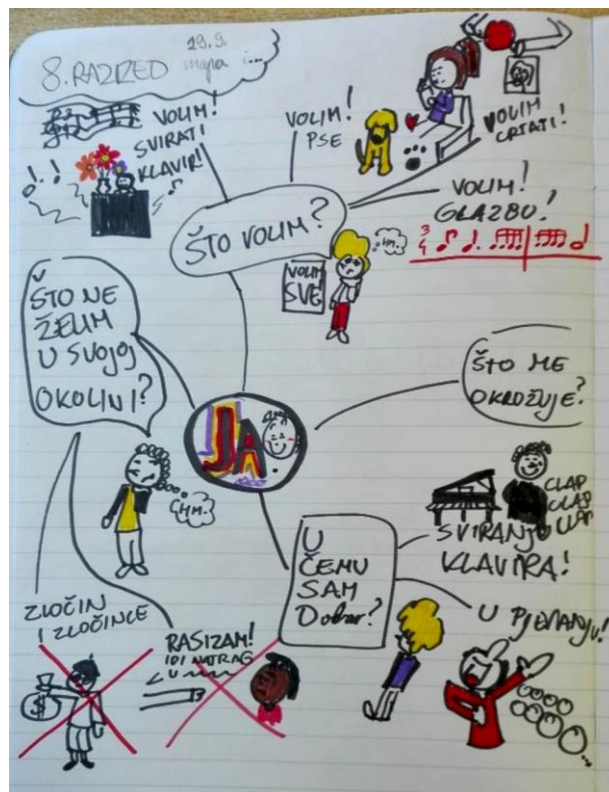 8. RAZRED
19.9.
mapa
VOLIM!
SVIRATI
KLAVIR!
VOLIM!
PSE
VOLIM
CRTATI!
VOLIM!
GLAZBU!
3
4
ŠTO VOLIM?
HM.
VOLIM
SVE
ŠTO NE
ŽELIM
U SVOJOJ
OKOLINI?
ŠTO ME
OKRUŽUJE?
JA
HM.
CLAP
CLAP
CLAP
U
ČEMU
SAM
Dobar?
SVIRANJU
KLAVIRA!
U PJEVANJU!
ZLOČIN
I ZLOČINCE
RASIZAM!
IDI NATRAG
U
$